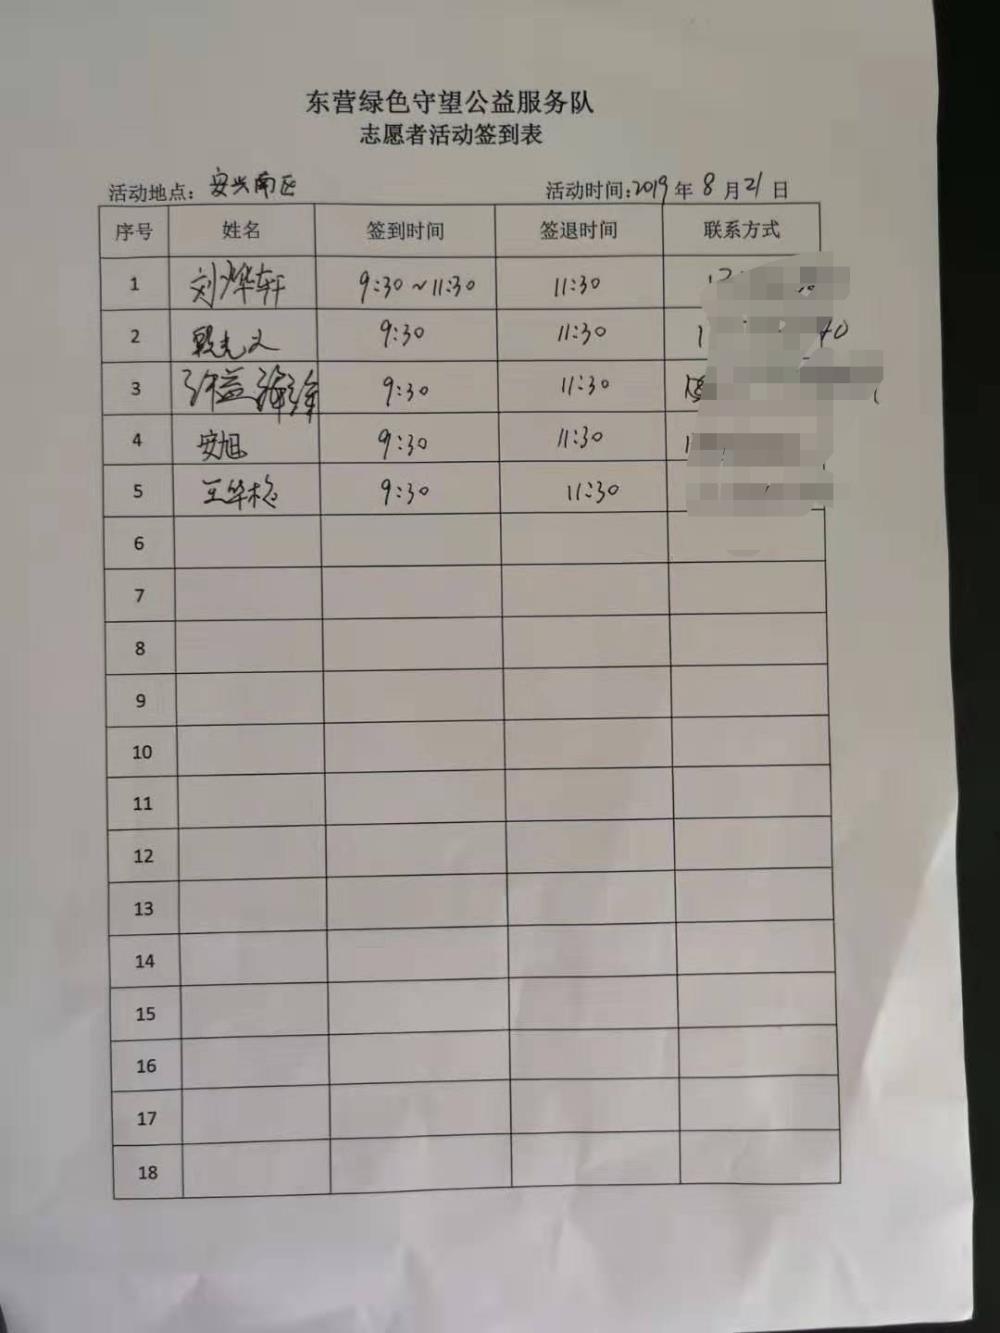 东营绿色守望公益服务队
志愿者活动签到表
活动地点：安兴南区 活动时间:2019年8月21日
序号 姓名 签到时间 签退时间 联系方式
1 刘烨轩 9:30~11:30 11:30
2 9:30 11:30
3 9:30 11:30
4 安旭 9:30 11:30
5 王华 9:30 11:30
6
7
8
9
10
11
12
13
14
15
16
17
18